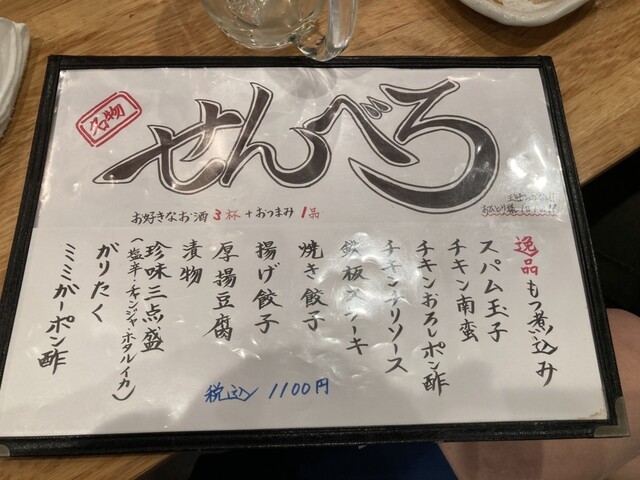 名物
せんべろ
お好きなお酒3杯+おつまみ1品
逸品もつ煮込み
スパム玉子
チキン南蛮
チキンおろしポン酢
チキンチリソース
鉄板ステーキ
焼き餃子
揚げ餃子
厚揚豆腐
漬物
珍味三点盛
(塩辛・チャンジャ・ホタルイカ)
がりたく
ミミガーポン酢
税込 1100円